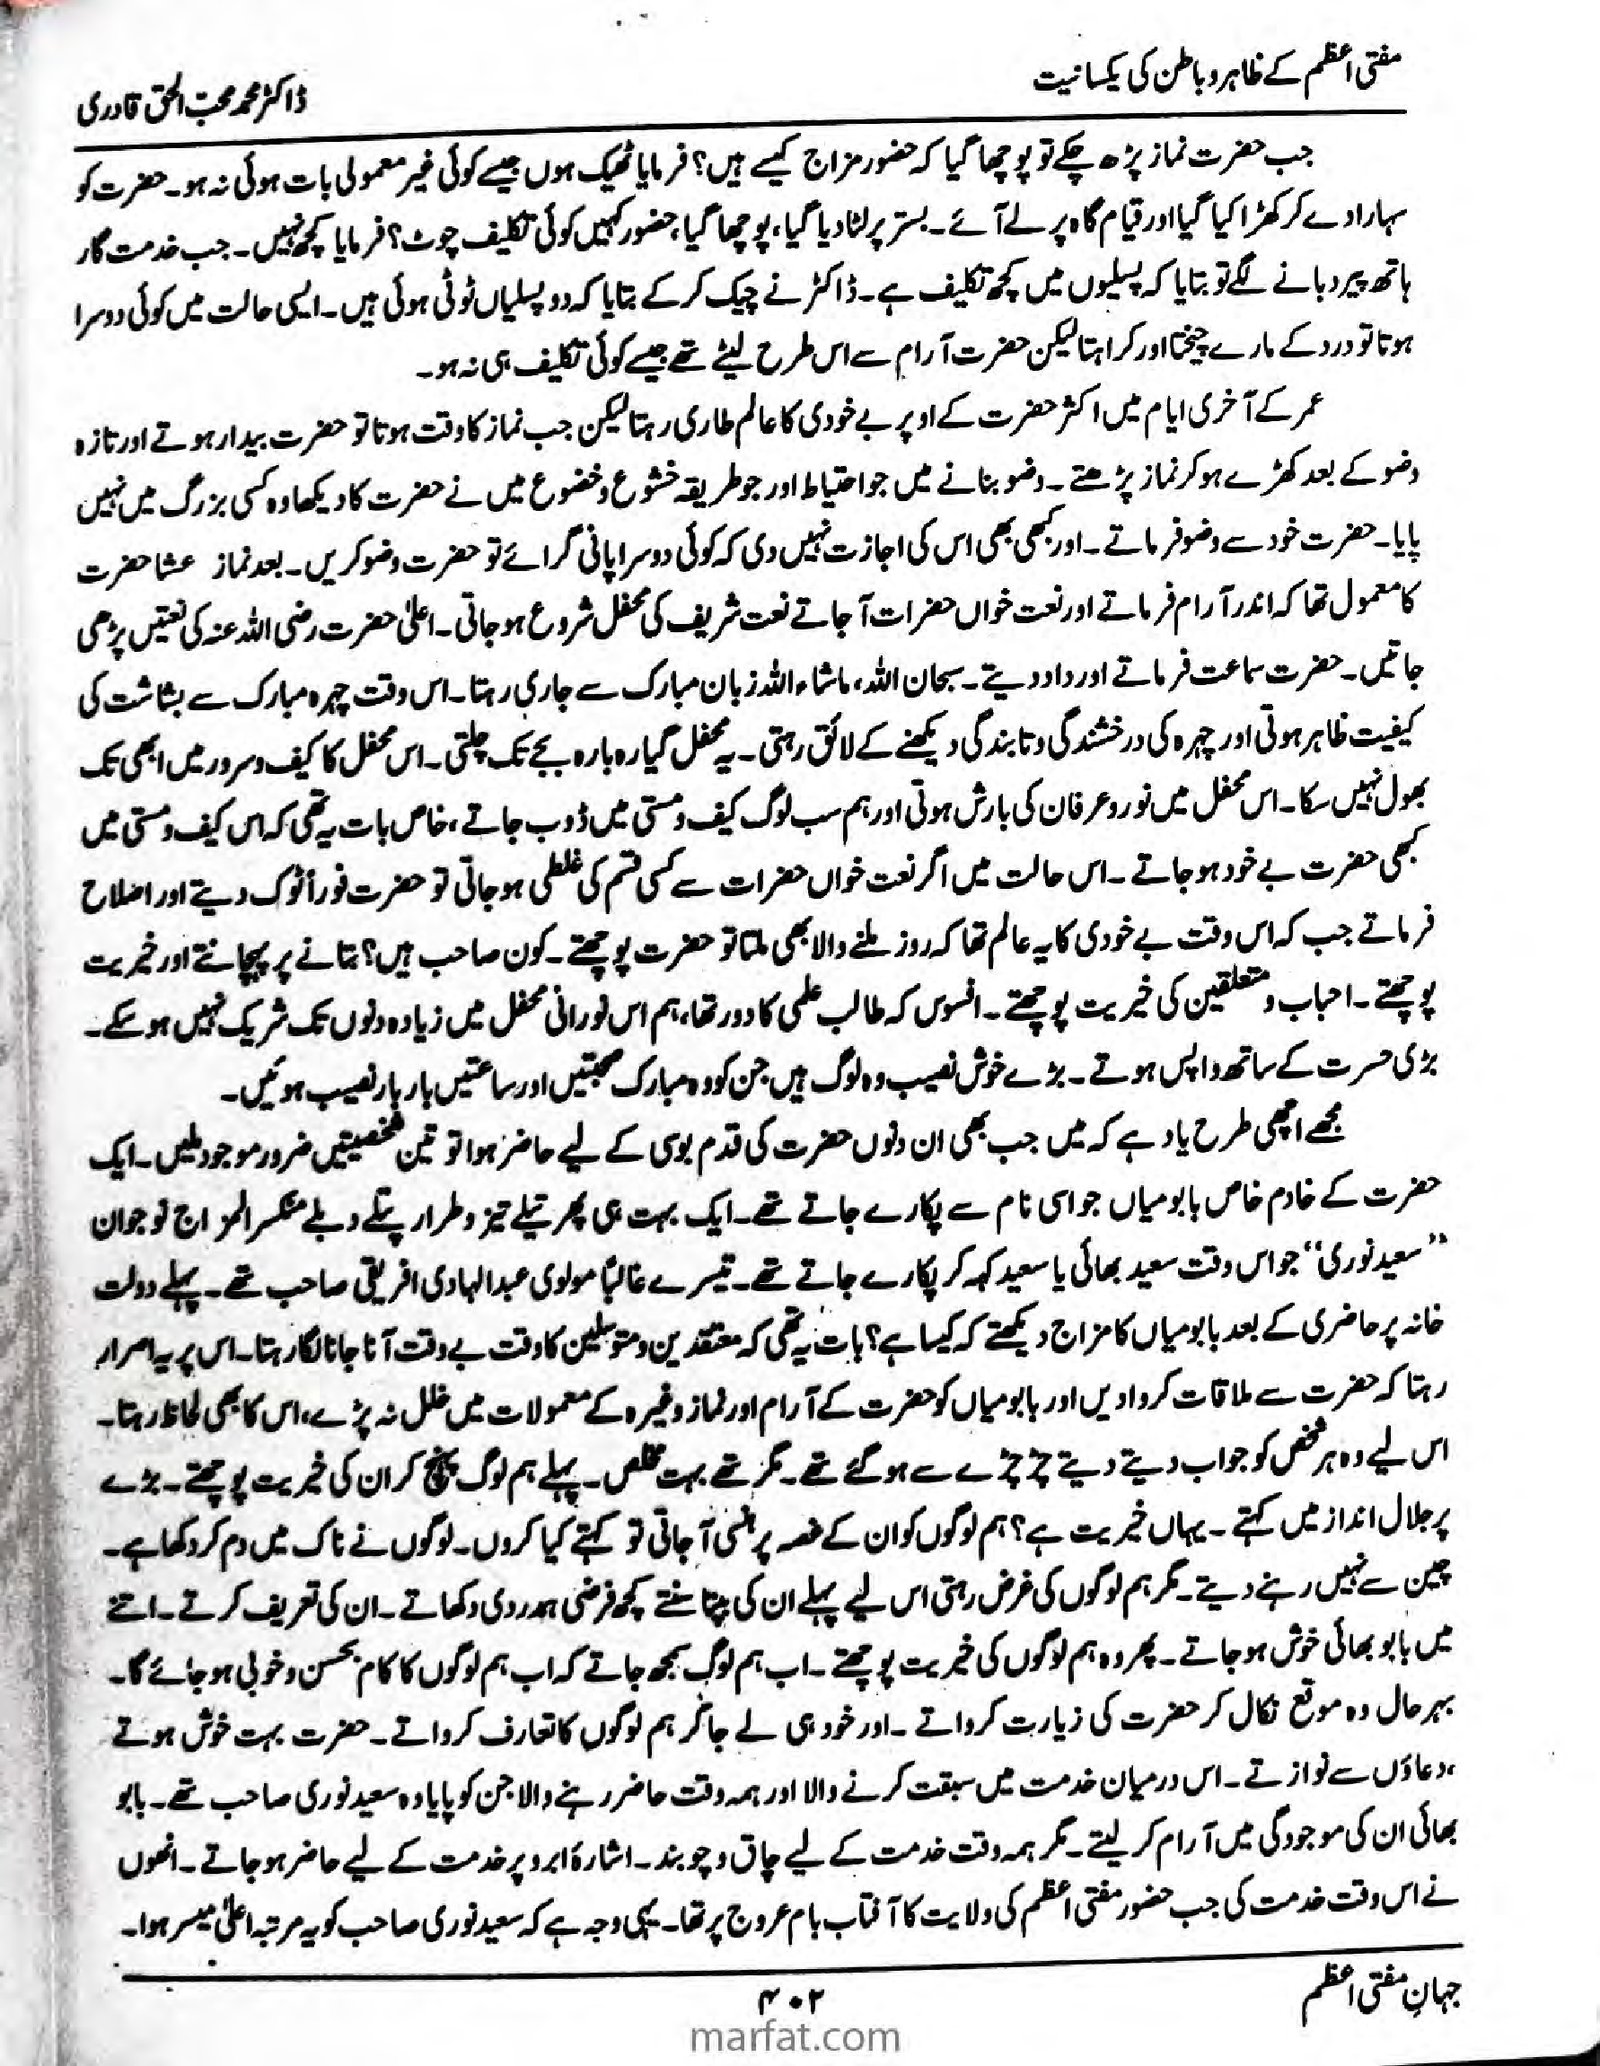 مفتی اعظم کے ظاہر و باطن کی یکسانیت
ڈاکٹر محمد محبّ الحق قادری
جب حضرت نماز پڑھ چکے تو پوچھا گیا کہ حضور مزاج کیسے ہیں؟ فرمایا ٹھیک ہوں جیسے کوئی غیر معمولی بات ہوئی نہ ہو۔ حضرت کو
سہارا دے کر کھڑا کیا گیا اور قیام گاہ پر لے آئے۔ بستر پر لٹا دیا گیا، پوچھا گیا، حضور کہیں کوئی تکلیف چوٹ؟ فرمایا کچھ نہیں۔ جب خدمت گار
ہاتھ پیر دبانے لگے تو بتایا کہ پسلیوں میں کچھ تکلیف ہے۔ ڈاکٹر نے چیک کر کے بتایا کہ دو پسلیاں ٹوٹی ہوئی ہیں۔ ایسی حالت میں کوئی دوسرا
ہوتا تو درد کے مارے چیختا اور کراہتا لیکن حضرت آرام سے اس طرح لیٹے تھے جیسے کوئی تکلیف ہی نہ ہو۔
عمر کے آخری ایام میں اکثر حضرت کے اوپر بے خودی کا عالم طاری رہتا لیکن جب نماز کا وقت ہوتا تو حضرت بیدار ہوتے اور تازہ
وضو کے بعد کھڑے ہو کر نماز پڑھتے۔ وضو بنانے میں جو احتیاط اور جو طریقہ خشوع و خضوع میں نے حضرت کا دیکھا وہ کسی بزرگ میں نہیں
پایا۔ حضرت خود سے وضو فرماتے۔ اور کبھی بھی اس کی اجازت نہیں دی کہ کوئی دوسرا پانی گرائے تو حضرت وضو کریں۔ بعد نماز عشا حضرت
کا معمول تھا کہ اندر آرام فرماتے اور نعت خواں حضرات آجاتے نعت شریف کی محفل شروع ہو جاتی۔ اعلیٰ حضرت رضی اللہ عنہ کی نعتیں پڑھی
جاتیں۔ حضرت سماعت فرماتے اور داد دیتے۔ سبحان اللہ، ماشاء اللہ زبان مبارک سے جاری رہتا۔ اس وقت چہرہ مبارک سے بشاشت کی
کیفیت ظاہر ہوتی اور چہرہ کی درخشندگی و تابندگی دیکھنے کے لائق رہتی۔ یہ محفل گیارہ بارہ بجے تک چلتی۔ اس محفل کا کیف و سرور میں ابھی تک
بھول نہیں سکا۔ اس محفل میں نور و عرفان کی بارش ہوتی اور ہم سب لوگ کیف و مستی میں ڈوب جاتے، خاص بات یہ تھی کہ اس کیف و مستی میں
کبھی حضرت بے خود ہو جاتے۔ اس حالت میں اگر نعت خواں حضرات سے کسی قسم کی غلطی ہو جاتی تو حضرت فوراً ٹوک دیتے اور اصلاح
فرماتے جب کہ اس وقت بے خودی کا یہ عالم تھا کہ روز ملنے والا بھی ملتا تو حضرت پوچھتے۔ کون صاحب ہیں؟ بتانے پر پہچانتے اور خیریت
پوچھتے۔ احباب و متعلقین کی خیریت پوچھتے۔ افسوس کہ طالب علمی کا دور تھا، ہم اس نورانی محفل میں زیادہ دنوں تک شریک نہیں ہو سکے۔
بڑی حسرت کے ساتھ واپس ہوتے۔ بڑے خوش نصیب وہ لوگ ہیں جن کو وہ مبارک صحبتیں اور ساعتیں بار بار نصیب ہوئیں۔
مجھے اچھی طرح یاد ہے کہ میں جب بھی ان دنوں حضرت کی قدم بوسی کے لیے حاضر ہوا تو تین شخصیتیں ضرور موجود ملیں۔ ایک
حضرت کے خادم خاص بابو میاں جو اسی نام سے پکارے جاتے تھے۔ ایک بہت ہی پھرتیلے تیز و طرار پتلے دبلے منکسر المزاج نوجوان
”سعید نوری“ جو اس وقت سعید بھائی یا سعید کہہ کر پکارے جاتے تھے۔ تیسرے غالباً مولوی عبدالہادی افریقی صاحب تھے۔ پہلے دولت
خانہ پر حاضری کے بعد بابو میاں کا مزاج دیکھتے کہ کیسا ہے؟ بات یہ تھی کہ معتقدین و متوسلین کا وقت بے وقت آنا جانا لگا رہتا۔ اس پر یہ اصرار
رہتا کہ حضرت سے ملاقات کروا دیں اور بابو میاں کو حضرت کے آرام اور نماز وغیرہ کے معمولات میں خلل نہ پڑے، اس کا بھی لحاظ رہتا۔
اس لیے وہ ہر شخص کو جواب دیتے دیتے چڑچڑے سے ہو گئے تھے۔ مگر تھے بہت مخلص۔ پہلے ہم لوگ پہنچ کر ان کی خیریت پوچھتے۔ بڑے
پر جلال انداز میں کہتے۔ یہاں خیریت ہے؟ ہم لوگوں کو ان کے غصہ پر ہنسی آجاتی تو کہتے کیا کروں۔ لوگوں نے ناک میں دم کر رکھا ہے۔
چین سے نہیں رہنے دیتے۔ مگر ہم لوگوں کی غرض رہتی اس لیے پہلے ان کی بپتا سنتے کچھ فرضی ہمدردی دکھاتے۔ ان کی تعریف کرتے۔ اتنے
میں بابو بھائی خوش ہو جاتے۔ پھر وہ ہم لوگوں کی خیریت پوچھتے۔ اب ہم لوگ سمجھ جاتے کہ اب ہم لوگوں کا کام بحسن و خوبی ہو جائے گا۔
بہر حال وہ موقع نکال کر حضرت کی زیارت کرواتے۔ اور خود ہی لے جا کر ہم لوگوں کا تعارف کرواتے۔ حضرت بہت خوش ہوتے
، دعاؤں سے نوازتے۔ اس درمیان خدمت میں سبقت کرنے والا اور ہمہ وقت حاضر رہنے والا جن کو پایا وہ سعید نوری صاحب تھے۔ بابو
بھائی ان کی موجودگی میں آرام کر لیتے۔ مگر ہمہ وقت خدمت کے لیے چاق و چوبند۔ اشارۂ ابرو پر خدمت کے لیے حاضر ہو جاتے۔ انھوں
نے اس وقت خدمت کی جب حضور مفتی اعظم کی ولایت کا آفتاب بام عروج پر تھا۔ یہی وجہ ہے کہ سعید نوری صاحب کو یہ مرتبہ اعلیٰ میسر ہوا۔
جہانِ مفتی اعظم
۴۰۲
marfat.com